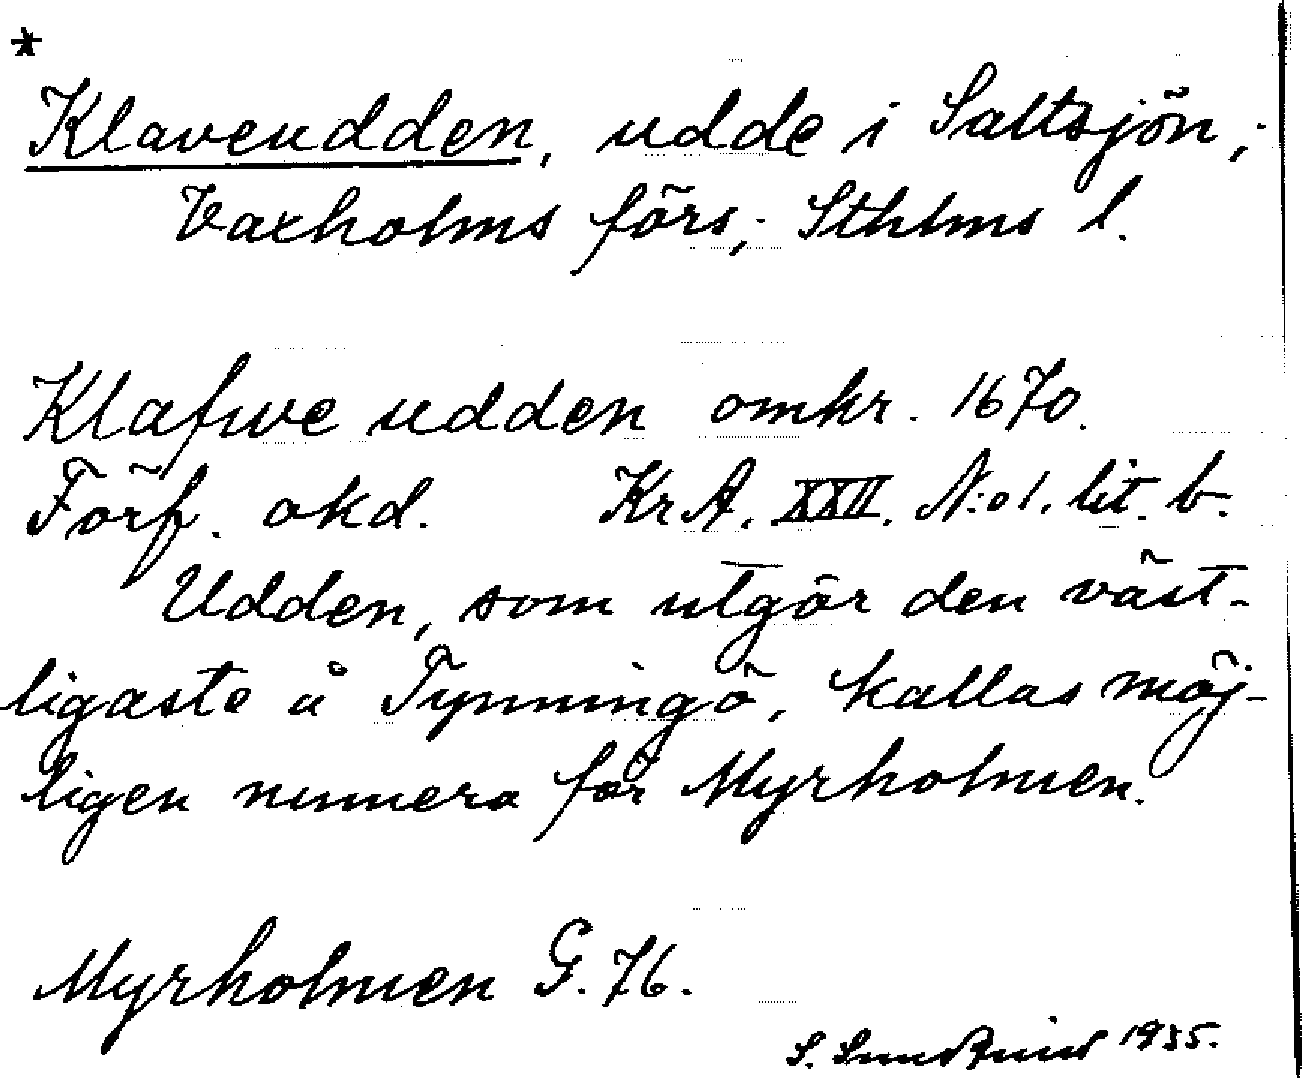 *
Klaveudden, udde i Saltsjön,
Vaxholms förs, Sthlms l.
Klafwe udden omkr. 1670.
Förf. okd. Kr A. XXII. N:o 1. lit. b.
Udden, som utgör den väst-
ligaste å Tynningö, kallas möj-
ligen numera för Myrholmen.
Myrholmen G. 76.
S. 1935.